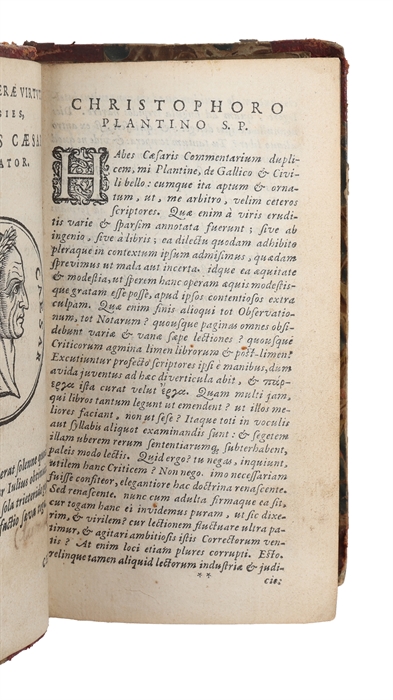 ERÆ VIRTVT
GIES,
S CÆSAR
ATOR.
CAESAR
erae solemne
er Iulius
sola
factio
CHRISTOPHORO
PLANTINO S. P.
HAbes Cæsaris Commentarium dupli-
cem, mi Plantine, de Gallico & Civi-
li bello: cumque ita aptum & orna-
tum, ut, me arbitro, velim ceteros
scriptores. Quæ enim à viris erudi-
tis varie & sparsim annotata fuerunt; sive ab
ingenio, sive à libris; ea dilectu quodam adhibito
pleraque in contextum ipsum admisimus, quædam
sprevimus ut mala aut incerta. idque ea æquitate
& modestia, ut sperem hanc operam æquis modestis-
que gratam esse posse, apud ipsos contentiosos extra
culpam. Quæ enim finis alioqui tot Observatio-
num, tot Notarum? quousque paginas omnes obsi-
debunt variæ & vanæ sæpe lectiones? quousque
Criticorum agmina limen librorum & post-limen?
Excutiuntur profecto scriptores ipsi è manibus, dum
avida juventus ad hæc diverticula abit, & πάρ-
εργα ista curat velut ἔργα. Quam multi jam,
qui libros tantum legunt ut emendent? ut illos me-
liores faciant, non ut sese? Itaque toti in voculis
aut syllabis aliquot examinandis sunt: & segetem
illam uberem rerum sententiarumq́ue, subterhabent,
paleis modo lecti. Quid ergo? tu negas, inquiunt,
utilem hanc Criticem? Non nego. imo necessariam
fuisse confiteor, elegantiore hac doctrina renascente.
Sed renascente. nunc cum adulta firmaque ea sit,
cur togam hanc ei invidemus puram, ut sic dixe-
rim, & virilem? cur lectionem fluctuare ultra pa-
timur, & agitari ambitiosis istis Correctorum ven-
tis? At enim loci etiam plures corrupti. Esto.
relinque tamen aliquid lectorum industriæ & judi-
**
cio: